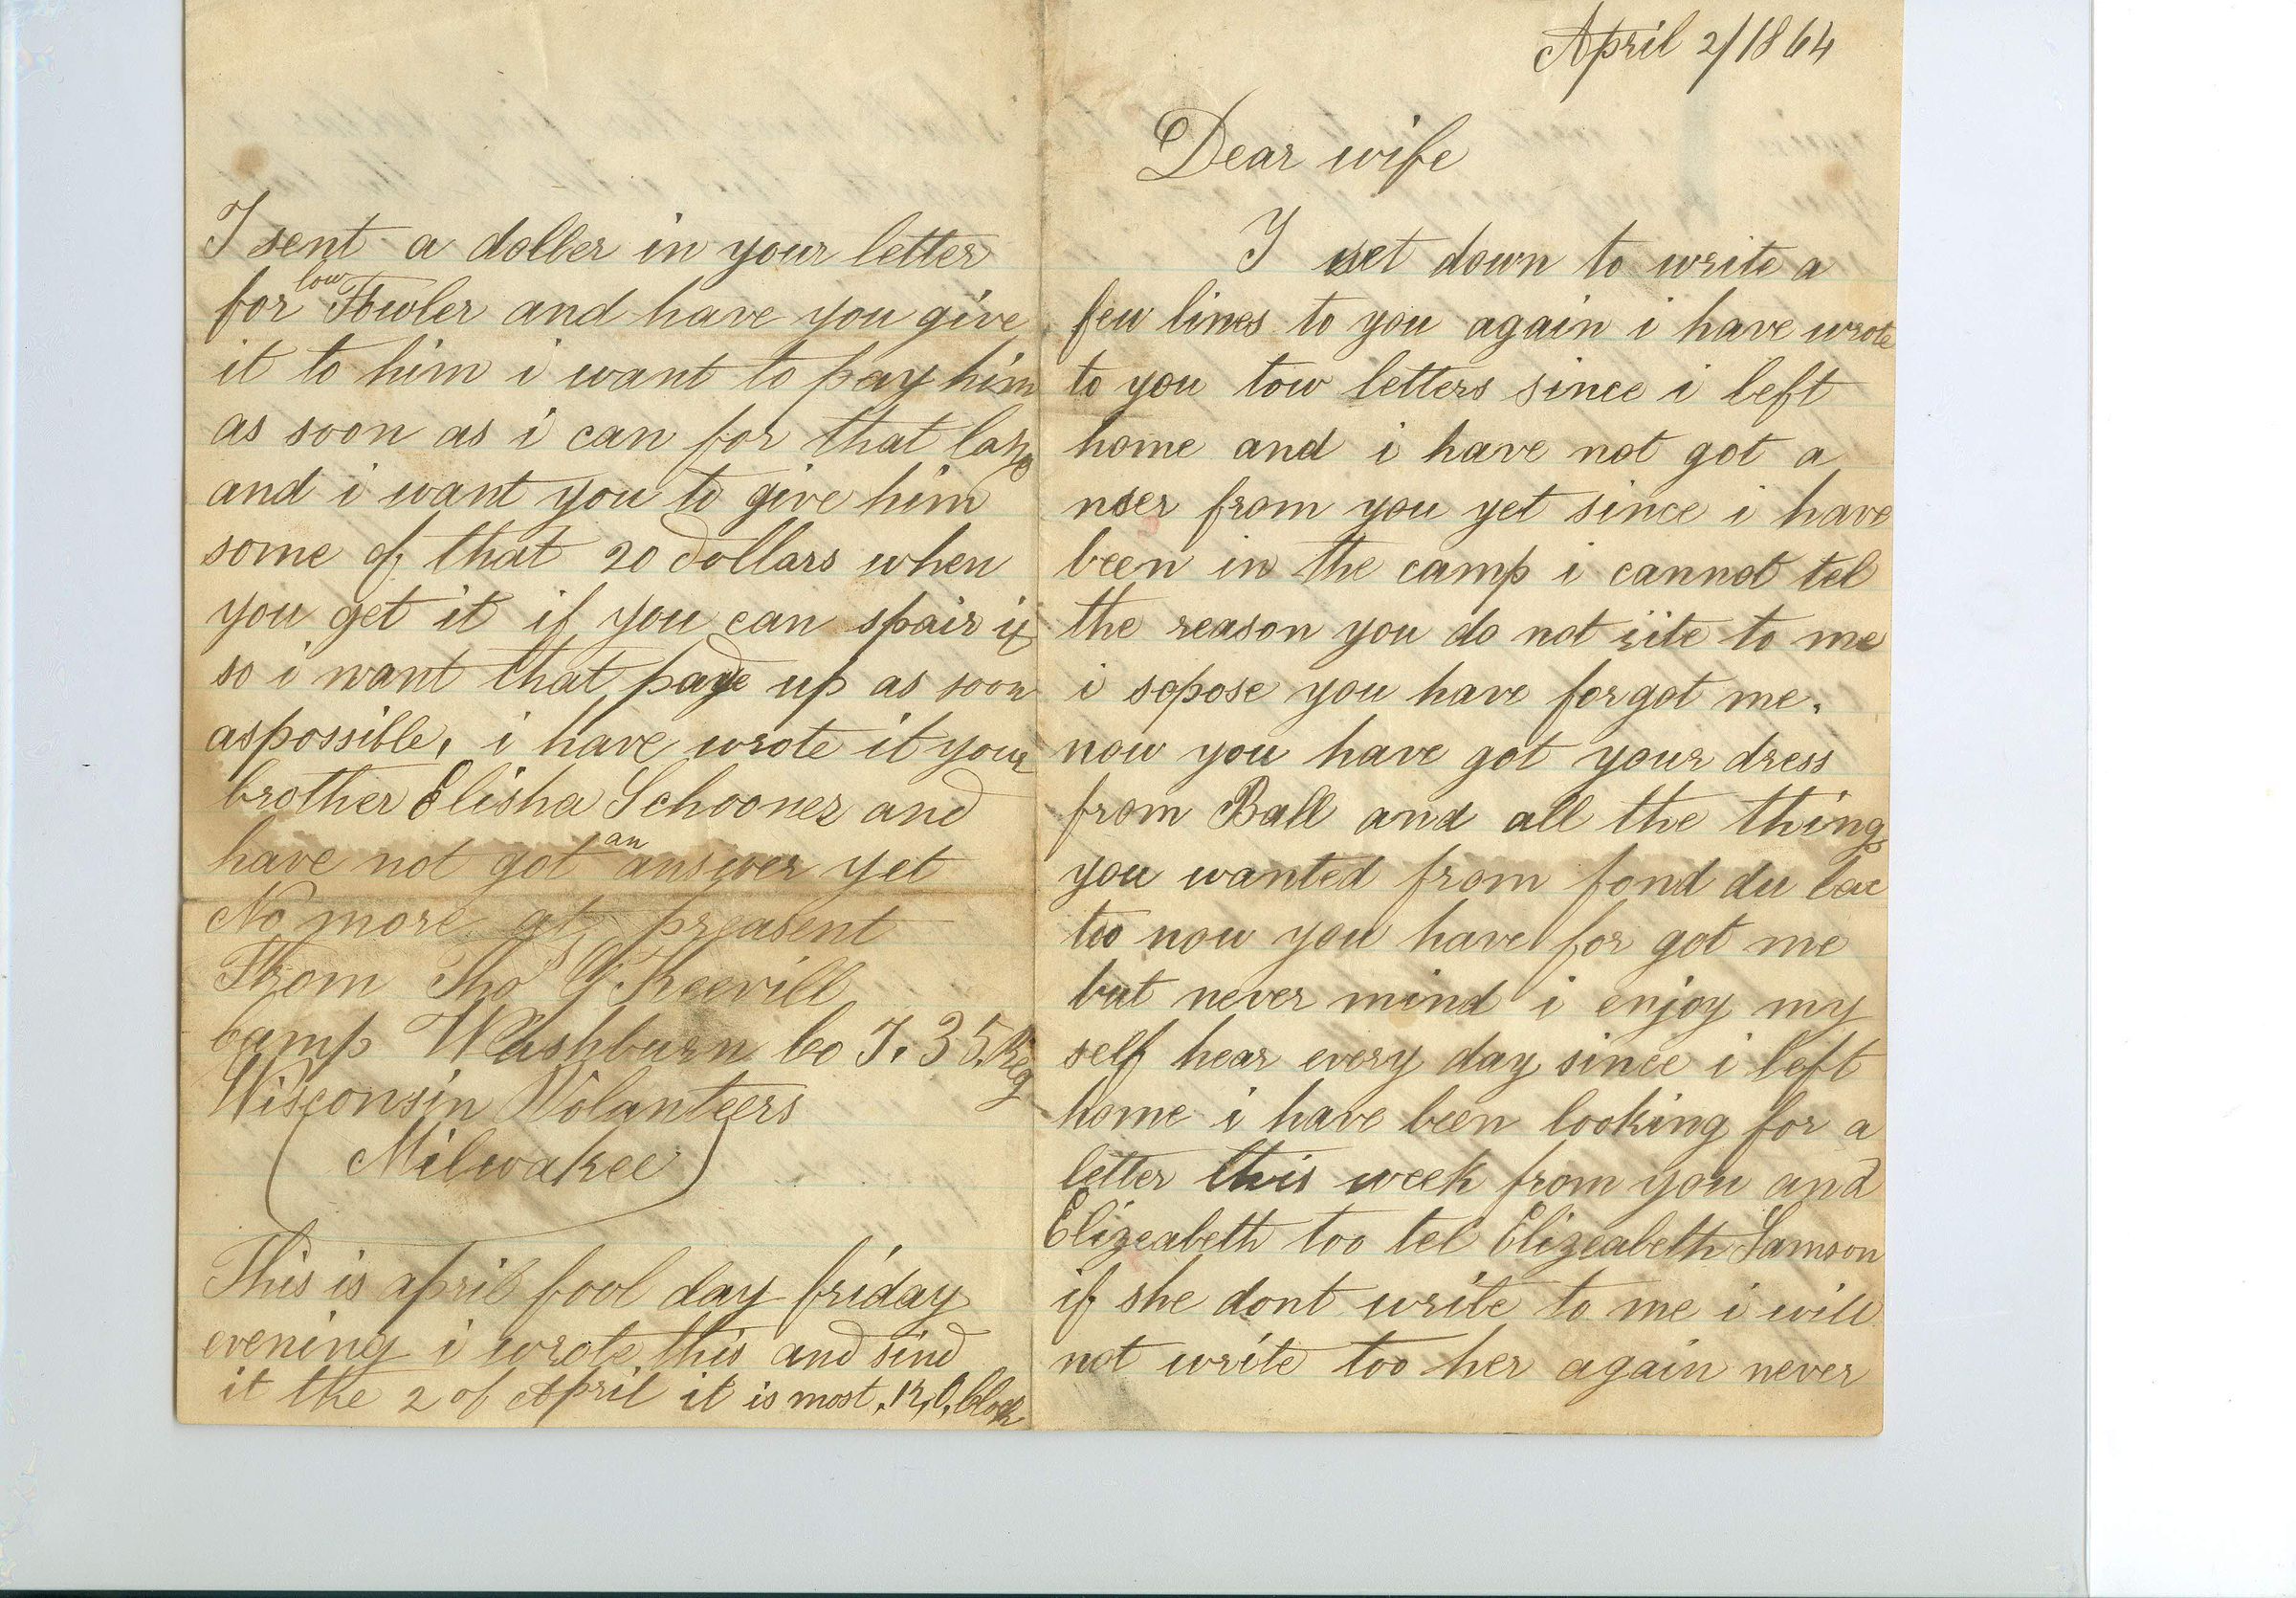 April 2/1864
Dear wife
I set down to write a
few lines to you again i have wrote
to you tow letters since i left
home and i have not got a
nser from you yet since i have
been in the camp i cannot tel
the reason you do not rite to me
i sopose you have forgot me.
now you have got your dress
from Ball and all the things
you wanted from fond du lac
too now you have for got me
but never mind i enjoy my
self hear every day since i left
home i have been looking for a
letter this week from you and
Elizeabeth too tel Elizeabeth Samson
if she dont write to me i will
not write too her again never
I sent a doller in your letter
for low Fowler and have you give
it to him i want to pay him
as soon as i can for that
and i want you to give him
some of that 20 dollars when
you get it if you can spair it
so i want that paye up as soon
aspossible, i have wrote it your
brother Elisha Schooner and
have not got an answer yet
No more at preasent
From Thos G Keevill
Camp Washburn Co I. 35 Reg
Wisconsin Volanteers
(Milwakee)
This is april fool day friday
evening i wrote this and sind
it the 2 of April it is most, 12, O, Clock